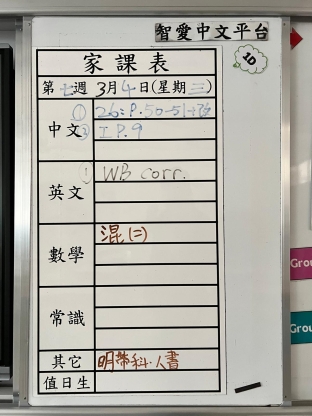 智愛中文平台
10
家課表
第七週 3月4日(星期三)
中文
① 26:P.50-51+改
② I P.9
英文
① WB corr.
數學
混(二)
常識
其它
明帶科.人書
值日生
Grou
Grou